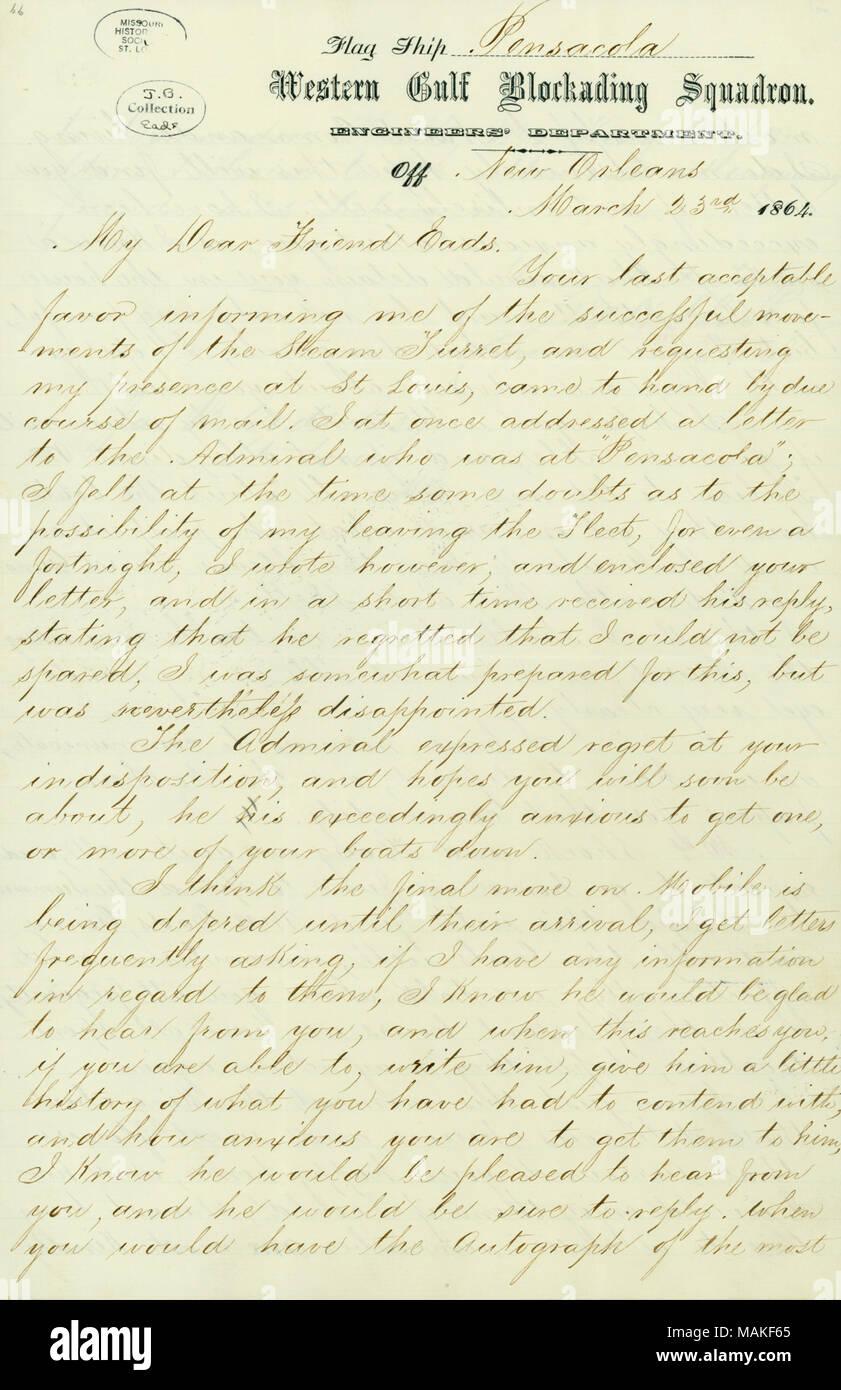 66
MISSOURI
HISTOR
SOCI
ST. LO
J.B.
Collection
Eads
Flag Ship Pensacola
Western Gulf Blockading Squadron.
ENGINEERS' DEPARTMENT.
Off New Orleans
March 23rd 1864.
My Dear Friend Eads.
Your last acceptable
favor informing me of the successful move-
ments of the Steam Turret, and requesting
my presence at St Louis, came to hand by due
course of mail. I at once addressed a letter
to the Admiral who was at "Pensacola";
I felt at the time some doubts as to the
possibility of my leaving the Fleet, for even a
fortnight, I wrote however, and enclosed your
letter, and in a short time received his reply,
stating that he regretted that I could not be
spared, I was somewhat prepared for this, but
was nevertheless disappointed.
The Admiral expressed regret at your
indisposition, and hopes you will soon be
about, he is exceedingly anxious to get one,
or more of your boats down.
I think the final move on Mobile is
being defered until their arrival, I get letters
frequently asking, if I have any information
in regard to them, I Know he would be glad
to hear from you, and when this reaches you,
if you are able to, write him, give him a little
history of what you have had to contend with,
and how anxious you are to get them to him,
I Know he would be pleased to hear from
you, and he would be sure to reply. When
you would have the Autograph of the most
alamy
Image ID: MAKF65
www.alamy.com